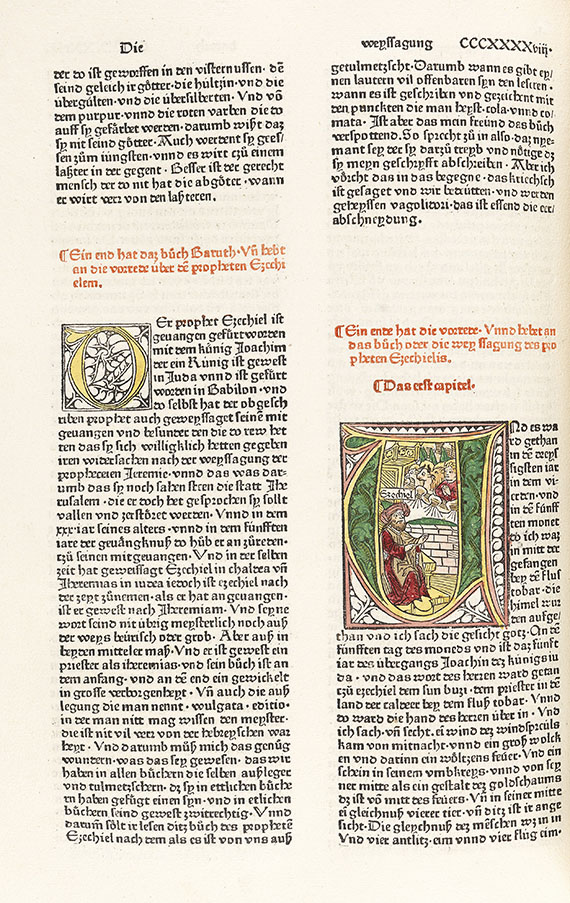 Die
weyssagung CCCXXXXviij.
der do ist geworffen in den visternussen. dē
seind geleich ir götter. die hültzin. vnd die
übergülten. vnd die übersilberten. Vnd vō
dem purpur. vnnd die roten varben die do
auff sy gefärbet werden. darumb wißt daz
sy nit seind götter. Auch werdent sy gres/
sen zům iüngsten. vnnd es wirt czů einem
laßter in der gegent. Besser ist der gerecht
mensch der do nit hat die abgötter. wann
er wirt verr von den laßteren.
¶Ein end hat daz bůch Baruch. Vñ hebt
an die vorrede über dē propheten Ezechi
elem.
DEr prophet Ezechiel ist
geuangen gefürt worden
mit dem künig Joachim
der ein Künig ist gewest
in Juda vnnd ist gefürt
worden in Babilon. vnd
do selbst hat der obgesch
riben prophet auch geweyssaget seinē mit
geuangen vnd besunder den die do rew het
ten das sy sich willigklich hetten gegeben
iren widersachen nach der weyssagung der
propheceien Jeremie. vnnd das was dar-
umb das sy noch sahen steen die statt Jhe
rusalem. die er doch het gesprochen sy sollt
vallen vnd zerstöret werden. Vnnd in dem
xxx. iar seines alters. vnnd in dem fünfften
iare der geuängknuß do hůb er an zůreden.
tzů seinen mitgeuangen. Vnd in der selben
zeit hat geweissagt Ezechiel in chaldea vñ
Jheremias in iudea iedoch ist ezechiel nach
der zeyt zůnemen. als er hat angeuangen.
ist er gewest nach Jheremiam. Vnd seyne
wort seind nit übrig meysterlich noch auß
der weys beürisch oder grob. Aber auß in
beyden mittel maß. Vnd er ist gewest ein
priester als iheremias. vnd sein bůch ist an
dem anfang. vnd an dē end ein gewickelt
in grosse verborgenheyt. Vñ auch die auß
legung die man nennt. wulgata. editio.
in der man nitt mag wissen den meyster.
die ist nit vil verr von der hebreyschen war
heyt. Vnd darumb můß mich das genůg
wundern. was das sey gewesen. das wir
haben in allen büchern die selben außleger
vnd tulmetschern. dz sy in ettlichen büche
rn haben gefügt einen syn. vnd in etlichen
büchern seind gewest zwitrechtig. Vnnd
darum sölt ir lesen ditz bůch des prophetē
Ezechiel nach dem als es ist von vns auß
getulmetzscht. Darumb wann es gibt ey/
nen lautern vil offenbaren syn den lesern.
wann es ist geschriben vnd gezeichent mit
den punckten die man heyst. cola. vnd co/
mata. Ist aber das mein freünd das bůch
verspottend. So sprecht zů in also. daz nye-
mant sey der sy darzů treyb vnd nötige dz
sy meyn geschryfft abschreiben. Aber ich
vörcht das in das begegne. das kriechsch
ist gesaget vnd wir bedeütten. vnd werden
geheyssen vagolitori. das ist essend die eer/
abschneydung.
¶Ein ende hat die vorrede. Vnnd hebet an
das bůch oder die wey ssagung des pro
pheten Ezechielis.
¶Das erst capitel.
Ezechiel
VNd es wa
rd gethan
in dē dreyß
sigsten iar
in dem vi-
erden. vnd
in dē fünff
ten monet
do ich waz
in mitt der
gefangen
bey dē fluß
tobar. die
himel wur
den aufge/
than vnd ich sach die gesicht gotz. An dē
fünfften tag des moneds vnd ist daz fünft
iat des übergangs Joachin dez künigs iu
da. vnd das wort des herren ward getan
czů ezechiel dem sun buzi. dem priester in dē
land der caldeer bey dem fluß tobar. Vnnd
do ward die hand des herren über in. Vnd
ich sach. vñ secht. ei wind dez windspreüls
kam von mitnacht. vnnd ein groß wolck
en vnd darinn ein wöltzens feüer. Vnd ein
schein in seinem vmbkreys. vnnd von sey
ner mitte als ein gestalt dez goldschaums
dz ist vō mitt des feüers. Vñ in seiner mitte
ei gleichnuß vierer tier. vñ ditz ist ir ange
sicht. Die gleychnuß dez mēschen wz in in
Vnd vier antlitz. eim vnnd vier flüg eim.